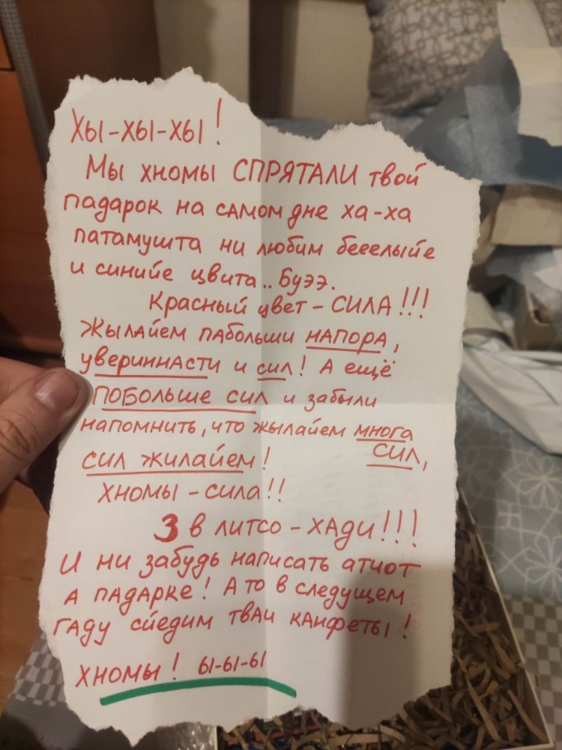 Хы-хы-хы!
Мы хномы СПРЯТАЛИ твой
падарок на самом дне ха-ха
патамушта ни любим бееелыйе
и синийе цвита.. Буээ.
Красный цвет - СИЛА!!!
Жылайем пабольши НАПОРА,
увериннасти и сил! А ещё
ПОБОЛЬШЕ СИЛ и забыли
напомнить, что жылайем многа
СИЛ ЖИЛАЙЕМ! СИЛ,
ХНОМЫ - СИЛА!!
3 в литсо - ХАДИ!!!
И ни забудь написать атчот
а падарке! А то в следущем
гаду сйедим тваи канфеты!
ХНОМЫ! ы-ы-ы